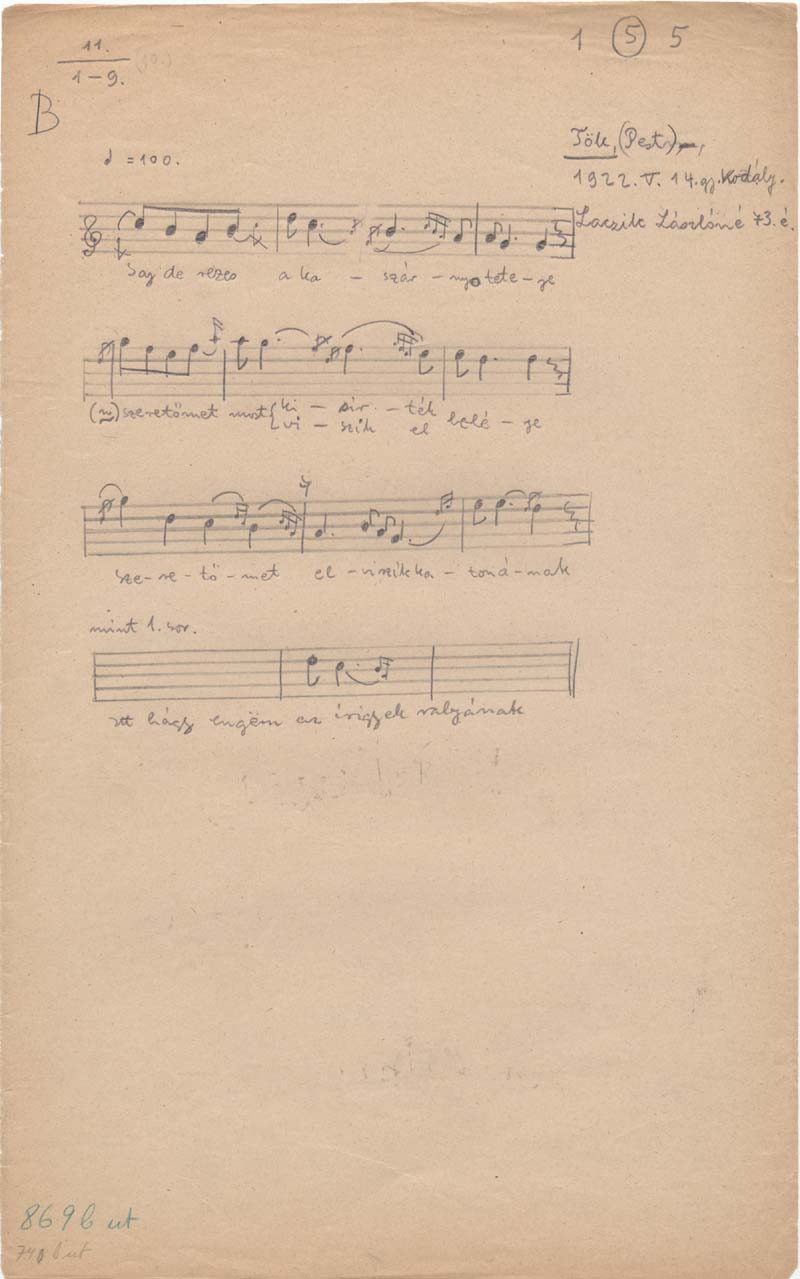 11.
1–9. (10.)
1 5 5
B
Tök, (Pest),
♩ =100.
1922. V. 14. gy. Kodály.
Laczik Lászlóné 73. é.
Saj de rezes a ka – szár – nyo tete – je
(ny) szeretőmet most ki – sír – ték
vi – szik el belé – je
sze – re – tő – met el – viszik ka – toná – nak
mint 1. sor.
itt hágy engëm az irigyek
869 b ut
740 b ut